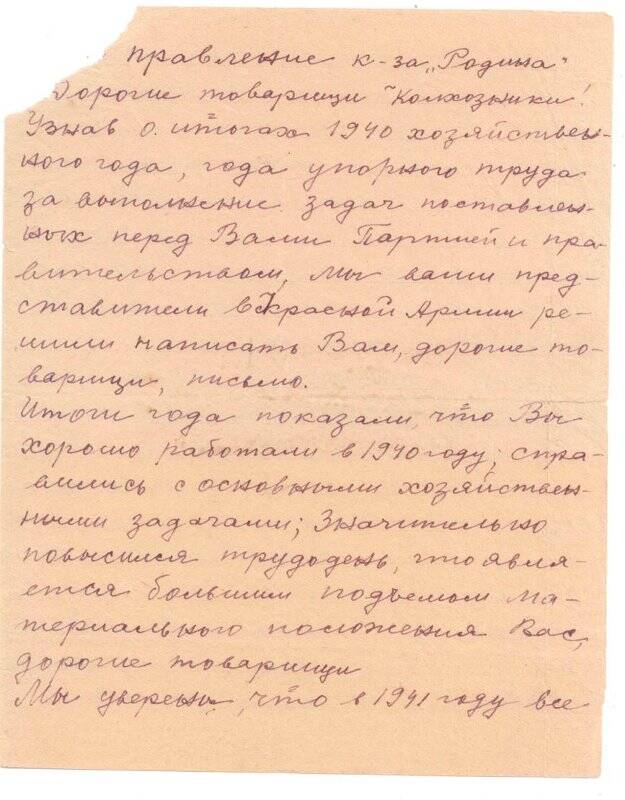 правление к-за „Родина"
Дорогие товарищи Колхозники!
Узнав о итогах 1940 хозяйствен-
ного года, года упорного труда
за выполнение задач поставлен-
ных перед Вами Партией и пра-
вительством, мы ваши пред-
ставители в Красной Армии ре-
шили написать Вам, дорогие то-
варищи, письмо.
Итоги года показали, что Вы
хорошо работали в 1940 году; спра-
вились с основными хозяйствен-
ными задачами; Значительно
повысился трудодень, что явля-
ется большим подъемом ма-
териального положения Вас,
дорогие товарищи
Мы уверены, что в 1941 году все